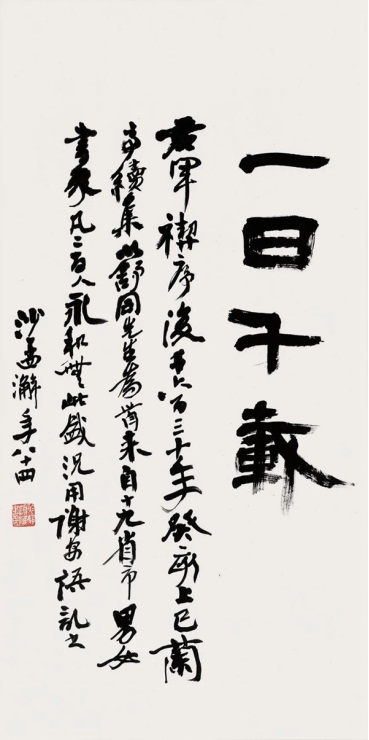 一日千載
右軍禊序後千六百三十年癸亥上巳蘭
亭續集以舒同先生為首來自十九省市男女
書家凡二百人永和無此盛況用謝安語記之
沙孟澥年八十四